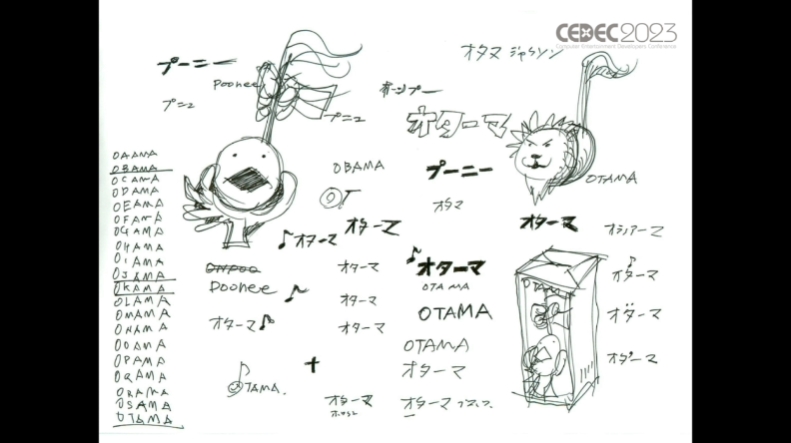 CEDEC2023
Computer Entertainment Developers Conference
オタマ ジャクソン
プーニー
Poonee
プニュ
プニュ
オターマ
OTAMA
OBAMA
プーニー
オタマ
オターマ
オターマ
♪オターマ
オターマ
♪オターマ
OTAMA
OTAMA
OTAMA
オターマ
オターマ
オターマ
オターマ
ONPOO
Poonee
オターマ♪
TAMA.
オターマ
オターマ
オターマ
オダーマ
OAAMA
OBAMA
OCAMA
ODAMA
OEAMA
OFAMA
OGAMA
OHAMA
OIAMA
OJAMA
OKAMA
OLAMA
OMAMA
ONAMA
OOAMA
OPAMA
OQAMA
ORAMA
OSAMA
OTAMA